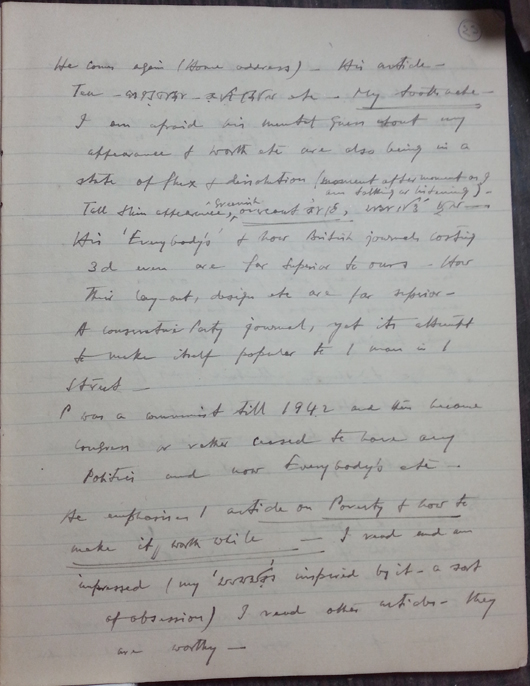 He comes again (Home address) — His article —
Tea — — etc — My toothache —
I am afraid his mental guess about my
appearance & worth etc are also being in a
state of flux & dissolution (moment after moment as I
am talking or listening) —
Tall slim appearance,
His 'Everybody's' & how British journals costing
3d even are far superior to ours — How
their lay-out, design etc are far superior —
A conservative Party journal, yet its attempt
to make itself popular to 1 man in 1
Street —
P was a communist till 1942 and then became
Congress or rather ceased to have any
Politics and now Everybody's etc —
He emphasises 1 article on Poverty & how to
make it worth while — I read and am
impressed (my inspired by it — a sort
of obsession) I read other articles — they
are worthy —